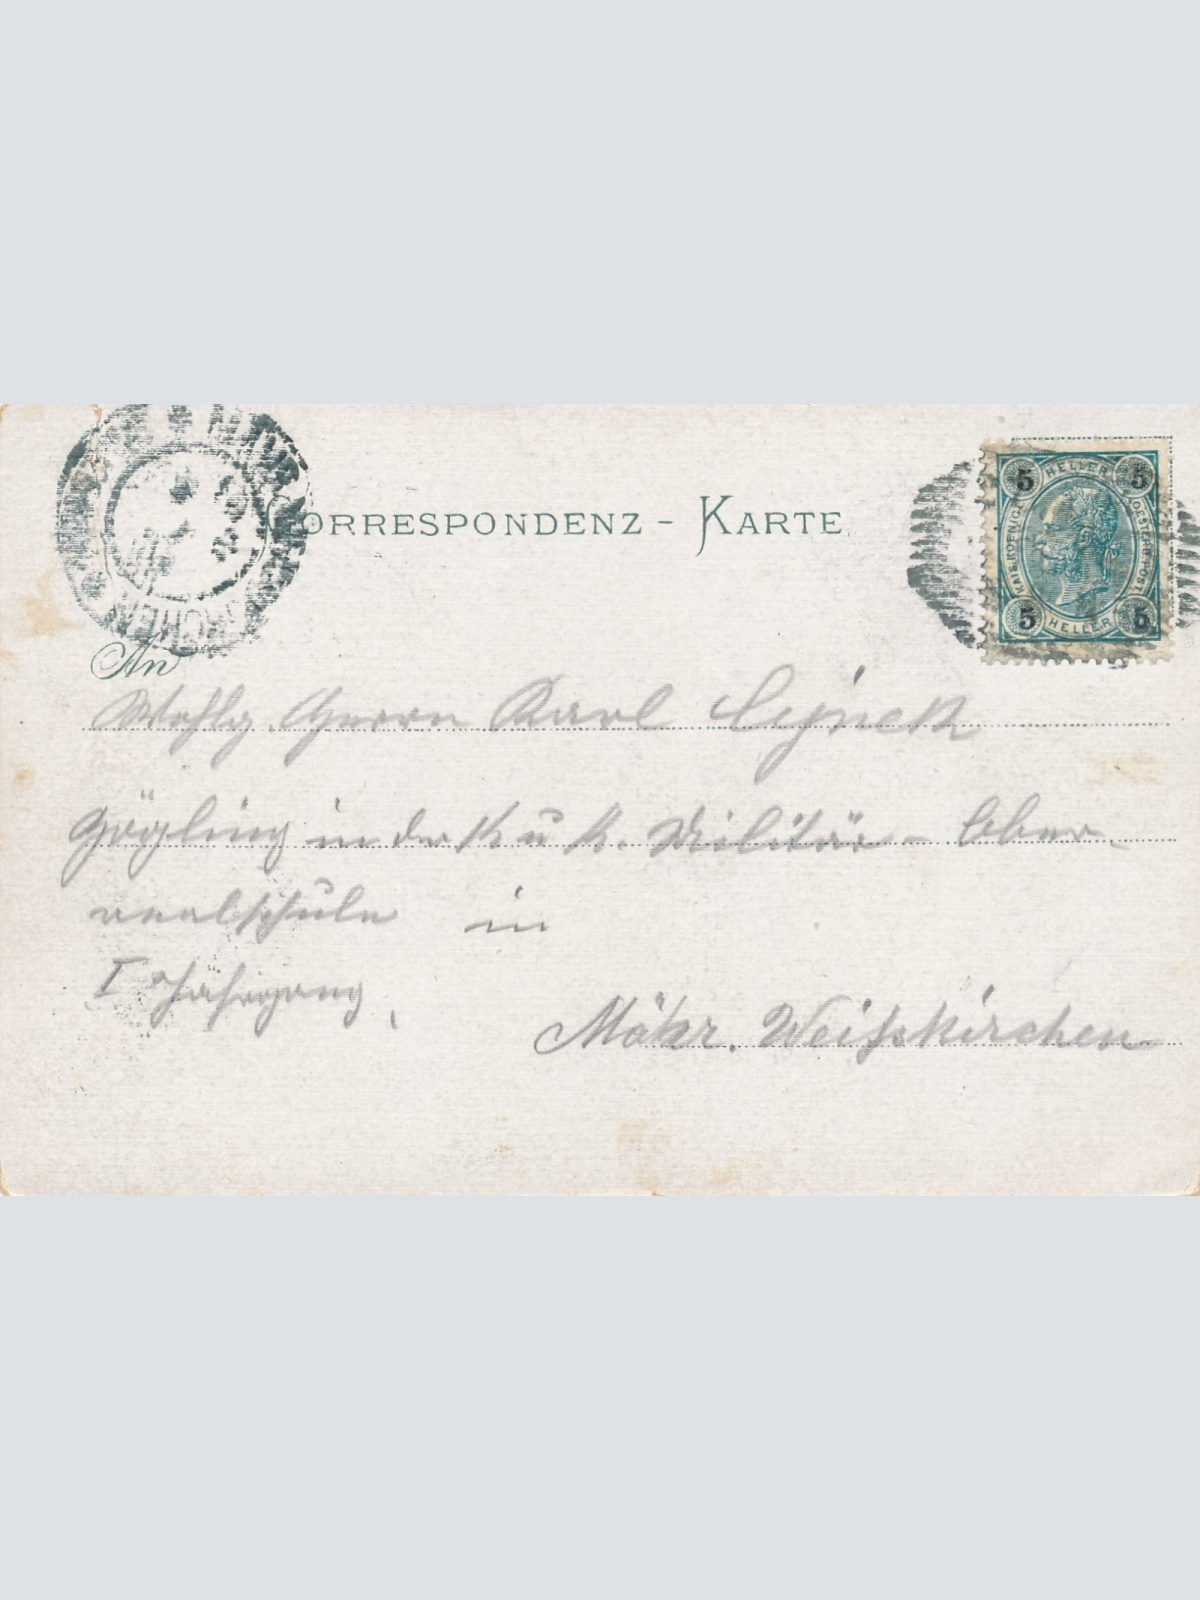 CORRESPONDENZ - KARTE
5 HELLER 5
KAIS. KOENIGL. OESTERR. POST
5 HELLER 5
An
Wohlg. Herrn Karl
Zögling in der k u k. Militär - Ober-
realschule in
I Jahrgang,
Mähr. Weisskirchen